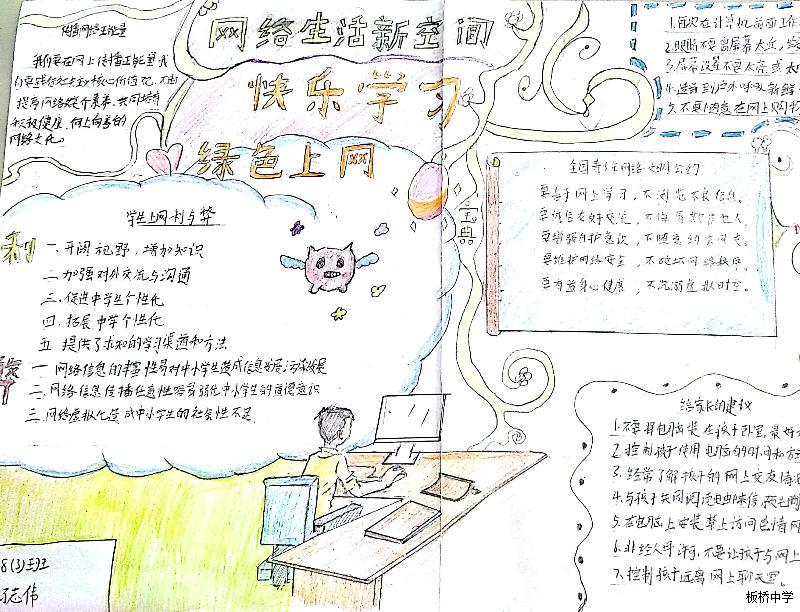 网络生活新空间
快乐学习
绿色上网
传播网络正能量
我们要在网上传播正能量我
们要践行社会主义核心价值观,不断
提高网络媒介素养,共同培育
积极健康、向上向善的
网络文化。
学生上网利与弊
利
一.开阔视野,增加知识
二.加强对外交流与沟通
三.促进中学生个性化
四.拓展中学个性化
五.提供了求知的学习渠道和方法
弊
一.网络信息的丰富性易对中小学生造成信息
二.网络信息传播任意性容易弱化中小学生的道德意识
三.网络虚拟化造成中小学生的社会性不足
8(3)班
志伟
宝典
1.每次在计算机前面工作
2.眼睛不要离屏幕太近,
3.屏幕设置不要太亮或太
4.适当到户外呼吸新鲜
5.不要随意在网上购物
全国青少年网络文明公约
要善于网上学习,不浏览不良信息。
要诚实友好交流,不侮辱欺诈他人。
要增强自护意识,不随意约会网友。
要维护网络安全,不破坏网络秩序。
要有益身心健康,不沉溺虚拟时空。
给家长的建议
1.不要将电脑安装在孩子卧室,最好
2.控制孩子使用电脑的时间和方
3.经常了解孩子的网上交友情
4.与孩子共同阅读电邮信,预先删
5.在电脑上安装禁止访问色情网
6.非经人许可,不要让孩子与网上
7.控制孩子远离网上聊天室。
板桥中学